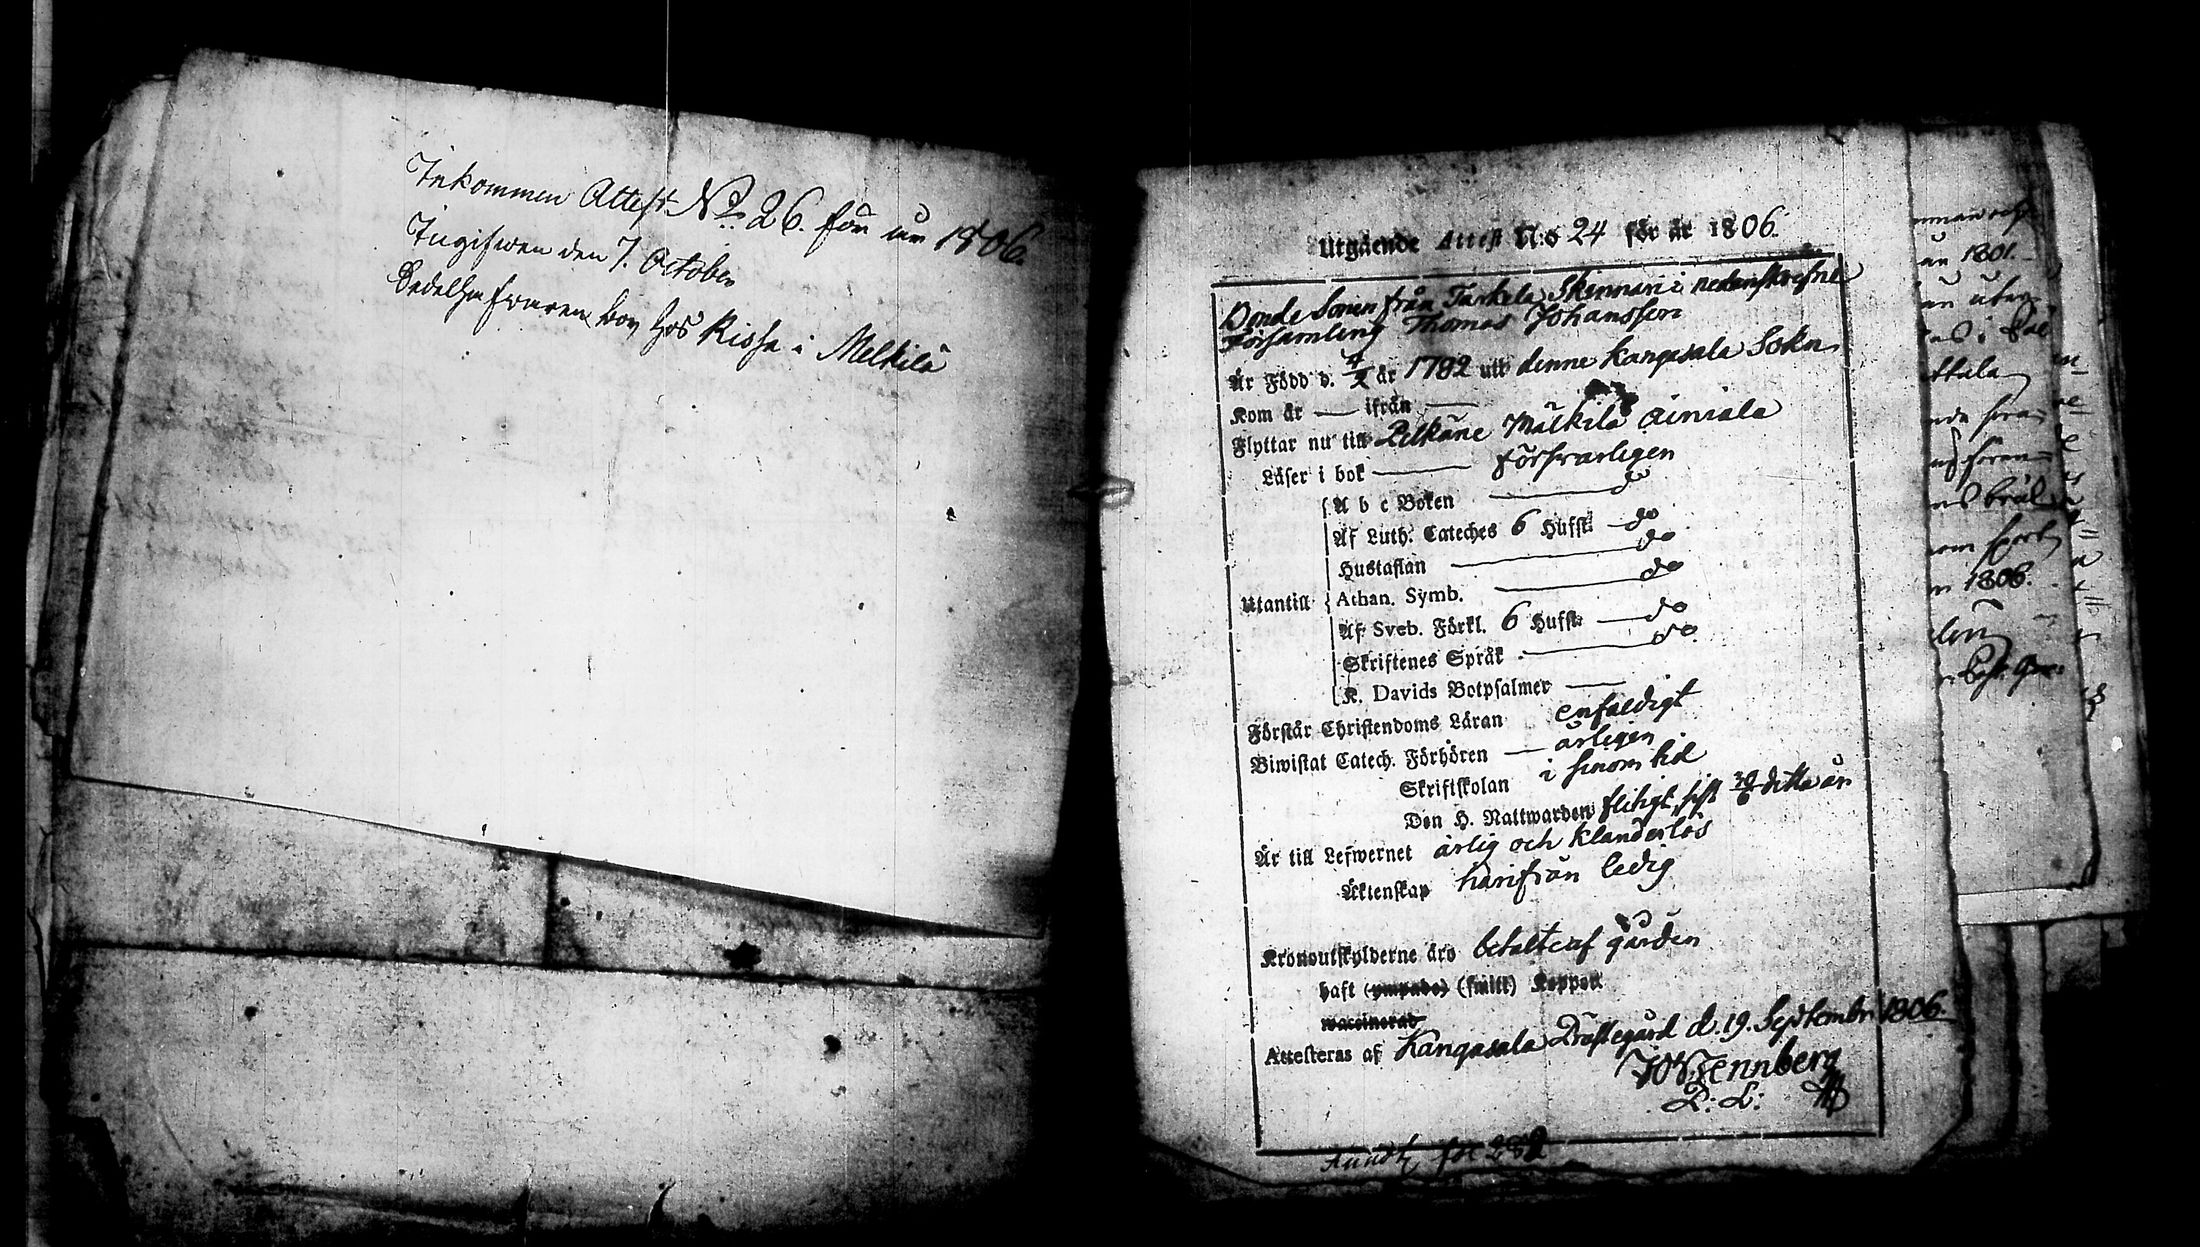 Inkommen Attest No 26. för år 1806.
Ingifwen den 7. October
Sedelhafwaren bor hos Rissa i Melkilä
Utgående Attest N:o 24 för år 1806.
Bonde Sonen från Tarkela Skinnari i nedanskrefne
Församling Thomas Johansson
Är Född d. år 1782 uti denne Kangasala Sokn
Kom år — ifrån —
Flyttar nu till Pelkäne Mälkilä Ainiala
Läser i bok — försvarligen
A b c Boken — do
Af Luth. Cateches 6 Hufst. — do
Hustaflan — do
Utantill
Athan. Symb. — do
Af Sveb. Förkl. 6 Hufst. — do
Skriftenes Språk — do
K. Davids Botpsalmer —
Förstår Christendoms Läran enfaldigt
Biwistat Catech. Förhören — årligen
Skriftskolan i sinom tid
Den H. Nattwarden flitigt, sist 30/6 detta år
Är till Lefwernet ärlig och klanderlös
Äktenskap härifrån ledig
Kronoutskylderne äro betalte af gården
haft (ympade) (smitt) Koppor
waccinerad
Attesteras af Kangasala Prästegård d. 19. Septembr 1806.
Wennberg
P: L:
fol 282
nman och
år 1801.
ttala
1806.